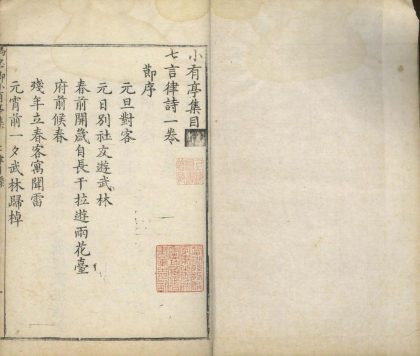 小有亭集目
七言律詩一卷
節序
元旦對客
元日別社友遊武林
春前開歲自長干拉遊雨花臺
府前候春
殘年立春客寓聞雷
元宵前一夕武林歸棹